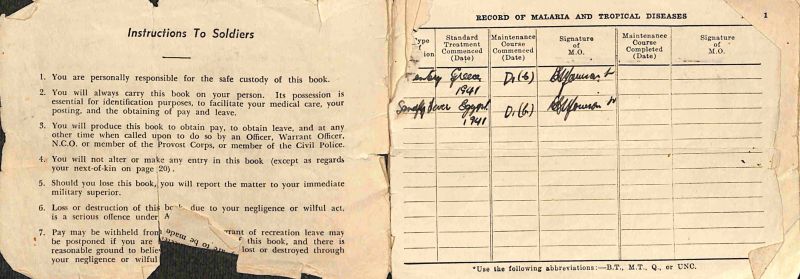 Instructions To Soldiers
1. You are personally responsible for the safe custody of this book.
2. You will always carry this book on your person. Its possession is
essential for identification purposes, to facilitate your medical care, your
posting, and the obtaining of pay and leave.
3. You will produce this book to obtain pay, to obtain leave, and at any
other time when called upon to do so by an Officer, Warrant Officer,
N.C.O. or member of the Provost Corps, or member of the Civil Police.
4. You will not alter or make any entry in this book (except as regards
your next-of-kin on page 20).
5. Should you lose this book, you will report the matter to your immediate
military superior.
6. Loss or destruction of this book due to your negligence or wilful act,
is a serious offence under A
7. Pay may be withheld from rant of recreation leave may
be postponed if you are f this book, and there is
reasonable ground to belie lost or destroyed through
your negligence or wilful
to be made
RECORD OF MALARIA AND TROPICAL DISEASES 1
Type
f
ion
Standard
Treatment
Commenced
(Date)
Maintenance
Course
Commenced
(Date)
Signature
of
M.O.
Maintenance
Course
Completed
(Date)
Signature
of
M.O.
Greece D1(6)
1941
Fever Egypt D1(6)
1941
*Use the following abbreviations:—B.T., M.T., Q., or UNC.